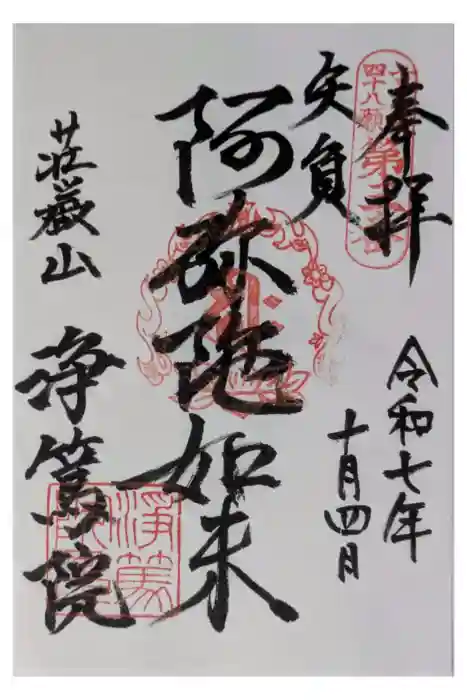 奉拝
四十八願
第二番
令和七年
十月四月
矢負
阿弥陀如来
荘厳山
浄篤院
浄篤院